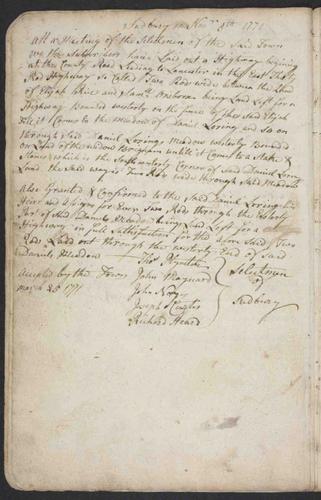 Sudbury Nov.r 8th 1770
Att a Meeting of the Selectmen of the Said Town
we the Subscribers have Laid out a Highway begining
att the County Road Leading to Lancaster in the East Thirty
Rod Highway So Called Two Rods wide between the Land
of Elijah Wice and Sam.l Osborne being Left for a
Highway Bounded westerly on the fence of the Said Elijah
till it Comes to the Meadow of Daniel Loring and So on
through Said Daniel Lorings Meadow westerly Bounded
on Land of the widow Brigham untill it Comes to a Stake &
Stones which is the Southwesterly Corner of Said Daniel Loring
Land the Said way is Two Rods wide through Said Meadow
Also Granted & Confirmed to the Said Daniel Loring his
Heirs and Assigns for Ever Two Rods through the Easterly
Part of Said Daniels being Left for a
Highway in full Satisfaction for the above Said Two
Rods Laid out through the westerly End of Said
Daniels Meadow Tho.s Plympton
Accepted by the Town John Maynard Selectmen
March 25 1771 John Noyes of
Joseph Curtis Sudbury
Richard Heard